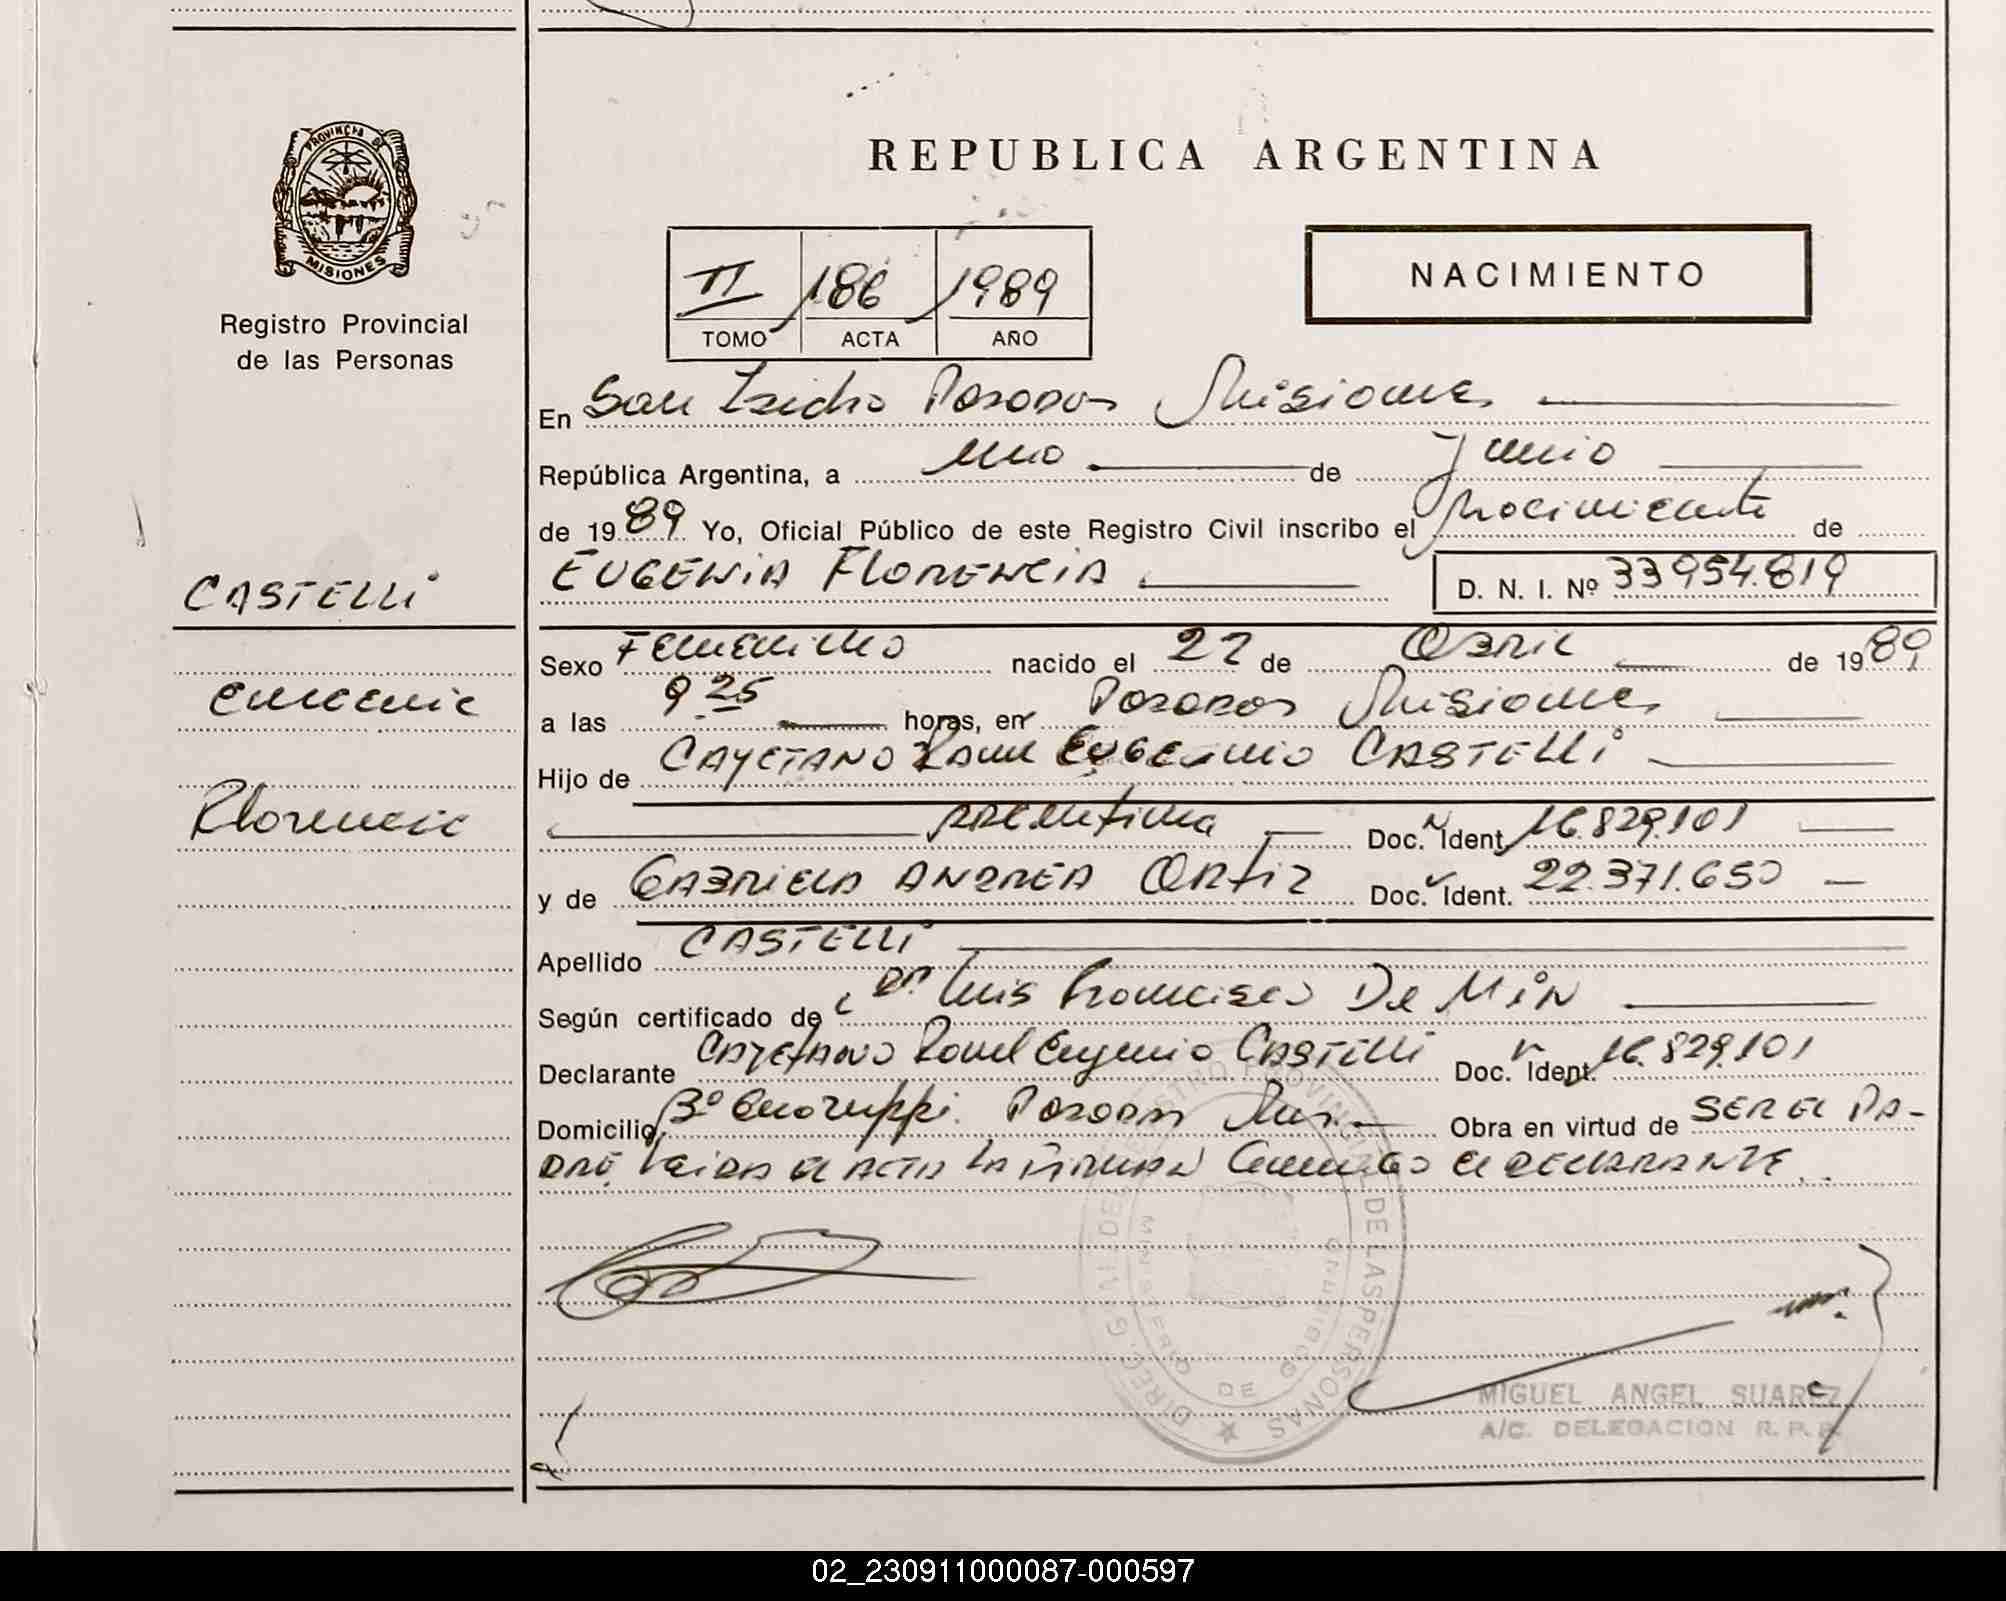 PROVINCIA DE
MISIONES
Registro Provincial
de las Personas
CASTELLI
Eugenia
Florencia
REPUBLICA ARGENTINA
II 186 1989
TOMO ACTA AÑO
NACIMIENTO
En San Isidro Posadas Misiones
República Argentina, a uno de Junio
de 1989 Yo, Oficial Público de este Registro Civil inscribo el Nacimiento de
EUGENIA FLORENCIA D. N. I. Nº 33954.819
Sexo Femenino nacido el 27 de Abril de 1989
a las 9 25 horas, en Posadas Misiones
Hijo de CAYETANO Raul EUGENIO CASTELLI
Argentina Doc. Ident. 16.829.101
y de GABRIELA ANDREA Ortiz Doc. Ident. 22.371.650
Apellido CASTELLI
Según certificado de Dr. Luis Francisco De MiN
Declarante CAYETANO Raul Eugenio CASTELLI Doc. Ident. 16.829.101
Domicilio Bº Posadas Mis. Obra en virtud de SER EL PA-
DRE, Leida el ACTA LA FIRMAN Conmigo el DECLARANTE.
DIREC. GRAL. DEL REGISTRO PROVINCIAL DE LAS PERSONAS
MINISTERIO DE GOBIERNO
MIGUEL ANGEL SUAREZ
A/C. DELEGACION R. P. P.
02_230911000087-000597